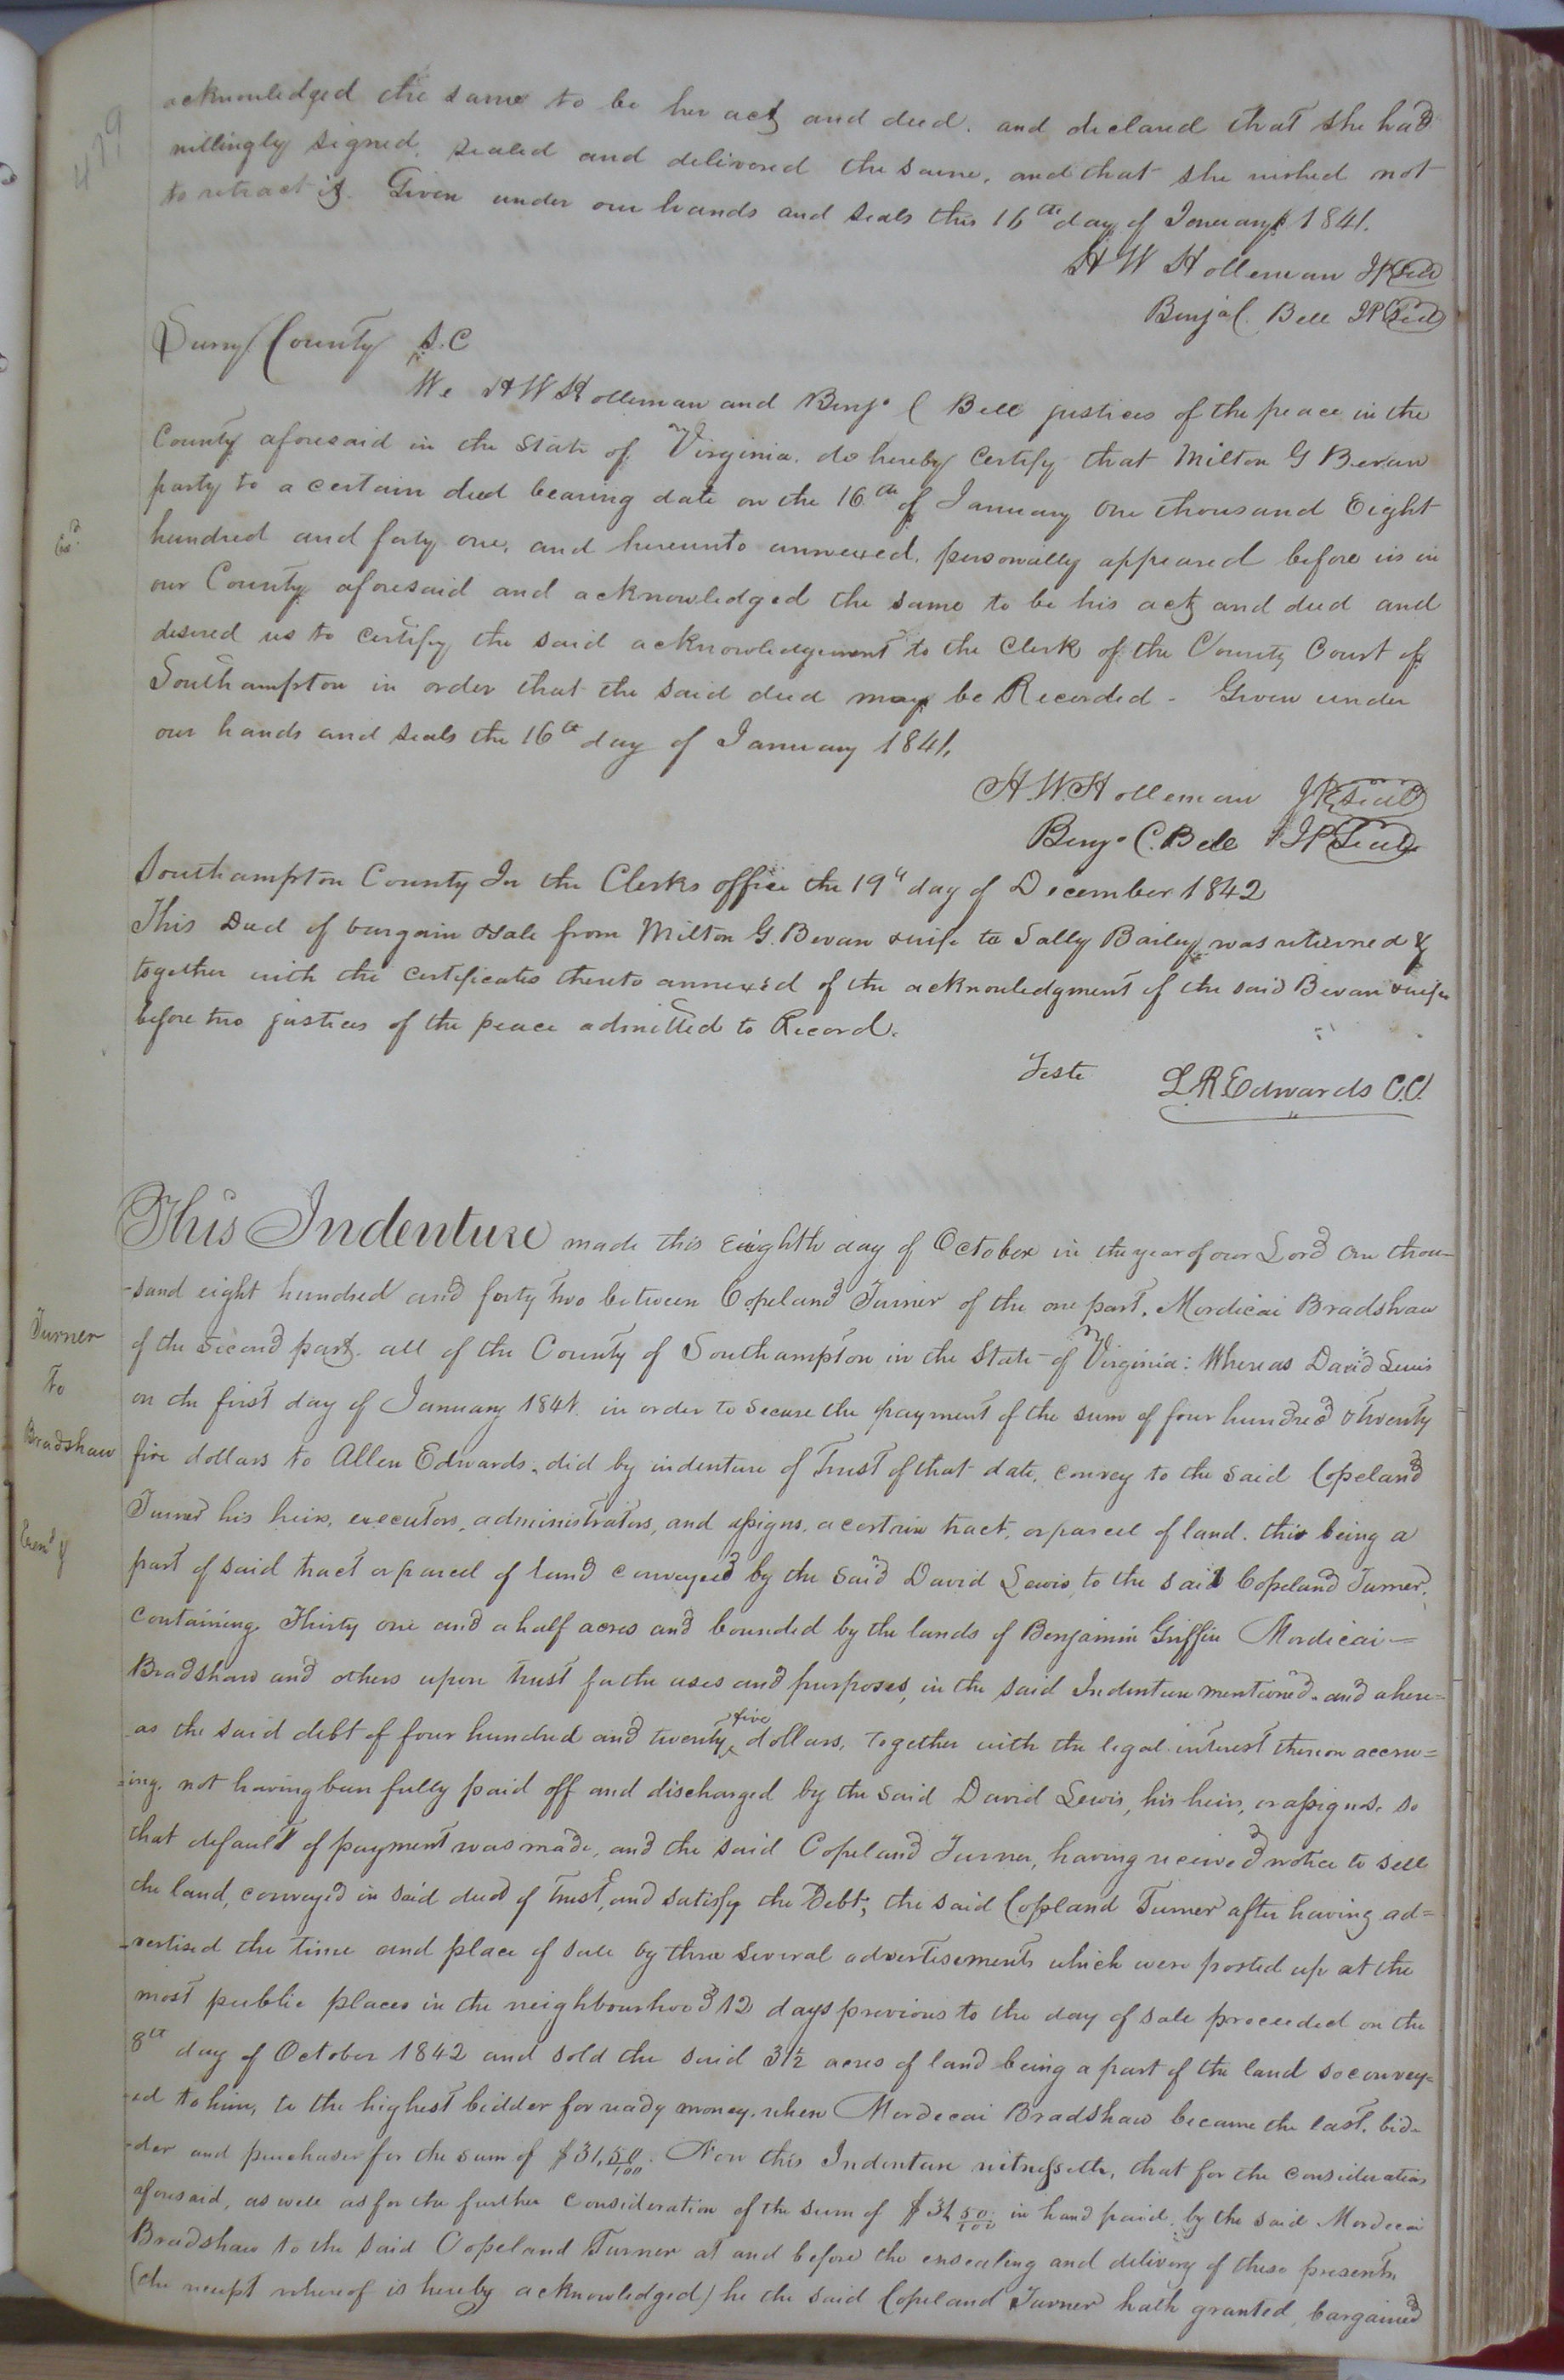 479
acknowledged the same to be her act and deed. and declared that she had
willingly signed, sealed and delivered the same, and that she wished not
to retract it. Given under our hands and seals this 16th day of January 1841.
H W Holleman JP Seal
Benja C. Bell JP Seal
Surry County S.C
We H W Holleman and Benja C Bell justices of the peace in the
County aforesaid in the State of Virginia. do hereby Certify that Milton G Bevan
party to a certain deed bearing date on the 16th of January One thousand Eight
hundred and forty one, and hereunto annexed. personally appeared before us in
Exd
our County aforesaid and acknowledged the same to be his act and deed and
desired us to Certify the said acknowledgement to the Clerk of the County Court of
Southampton in order that the said deed may be Recorded - Given under
our hands and seals the 16th day of January 1841.
H. W. Holleman JP Seal
Benja C. Bell JP Seal
Southampton County In the Clerks office the 19th day of December 1842
This Deed of bargain & sale from Milton G. Bevan & wife to Sally Bailey was returned &
together with the Certificates thereto annex'd of the acknowledgment of the said Bevan & wife
before two justices of the peace admitted to Record.
Teste L. R. Edwards C.C.
This Indenture made this Eighth day of October in the year of our Lord One thou-
-sand eight hundred and forty two between Copeland Turner of the one part. Mordicai Bradshaw
Turner
of the second part. all of the County of Southampton in the State of Virginia: Whereas David Lewis
to
on the first day of January 1841. in order to secure the payment of the sum of four hundred & twenty
Bradshaw
five dollars to Allen Edwards. did by indenture of Trust of that date, convey to the said Copeland
Turner his heirs, executors, administrators, and assigns, a certain tract, or parcel of land. this being a
Examd &
part of said tract or parcel of land conveyed by the said David Lewis, to the said Copeland Turner,
Containing Thirty one and a half acres and bounded by the lands of Benjamin Griffin Mordicai
Bradshaw and others upon trust for the uses and purposes, in the said Indenture mentioned. and where=
five
-as the said debt of four hundred and twenty dollars, together with the legal interest thereon accru=
=ing. not having been fully paid off and discharged by the said David Lewis, his heirs, or assigns. so
that default of payment was made, and the said Copeland Turner, having received notice to sell
the land, conveyed in said deed of trust, and satisfy the Debt; the said Copland Turner after having ad=
-vertised the time and place of sale by three several advertisements which were posted up at the
most public places in the neighbourhood 12 days previous to the day of sale proceeded on the
8th day of October 1842 and sold the said 31½ acres of land being a part of the land so convey=
-ed to him, to the highest bidder for ready money. when Mordecai Bradshaw became the last. bid-
-der and purchaser for the sum of $31,50/100. Now this Indenture witnesseth, that for the consideration
aforesaid, as well as for the further consideration of the sum of $31,50/100 in hand paid. by the said Mordecai
Bradshaw to the said Copeland Turner at and before the ensealing and delivery of these presents
(the receipt whereof is hereby acknowledged) he the said Copeland Turner hath granted, bargained